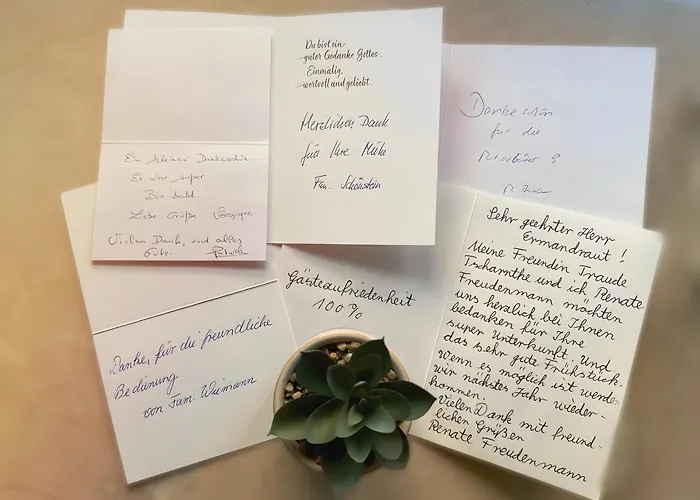 Ein kleiner Dankeschön
Es war super
Bis bald.
Liebe Grüße
Vielen Dank, und alles
Gute.
Du bist ein
guter Gedanke Gottes.
Einmalig,
wertvoll und geliebt.
Herzlichen Dank
für Ihre Mühe
Fam. Schönstein
Dankeschön
für die
Danke, für die freundliche
Bedienung
von Fam. Wiemann
Gästezufriedenheit
100%
Sehr geehrter Herr
Ermandraut!
Meine Freundin Traude
Tschamthe und ich Renate
Freudenmann möchten
uns herzlich bei Ihnen
bedanken für Ihre
super Unterkunft. Und
das sehr gute Frühstück.
wenn es möglich ist werden
wir nächstes Jahr wieder-
kommen.
Vielen Dank mit freund-
lichen Grüßen
Renate Freudenmann